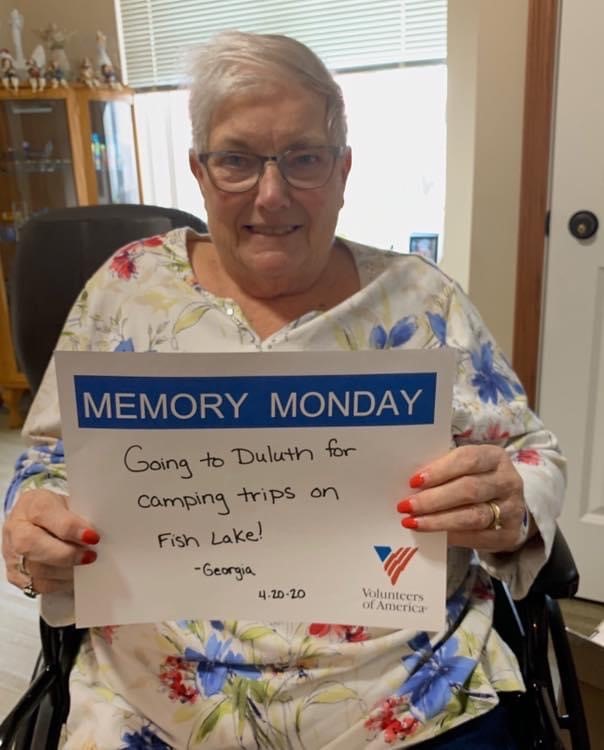 MEMORY MONDAY
Going to Duluth for
camping trips on
Fish Lake!
-Georgia
4.20.20
Volunteers
of America